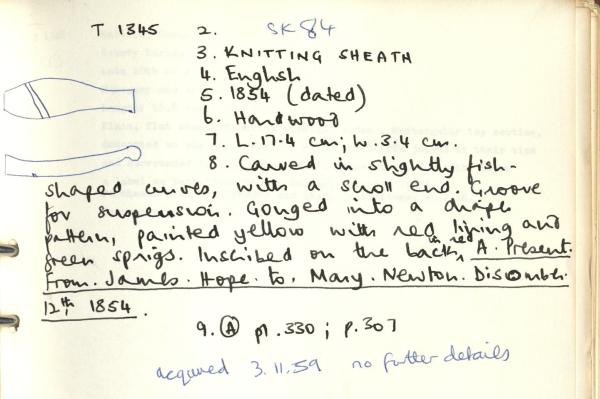 T 1345 2. SK 84
3. KNITTING SHEATH
4. English
5. 1854 (dated)
6. Hardwood
7. L. 17.4 cm; W. 3.4 cm.
8. Carved in slightly fish-
shaped curves, with a scroll end. Groove
for suspension. Gouged into a drape
pattern, painted yellow with red lining and
green sprigs. Inscribed on the back, in red, A. Present.
From. James. Hope. to. Mary. Newton. Disember.
12th, 1854.
9. Ⓐ pl. 330; p. 307
acquired 3.11.59 no further details